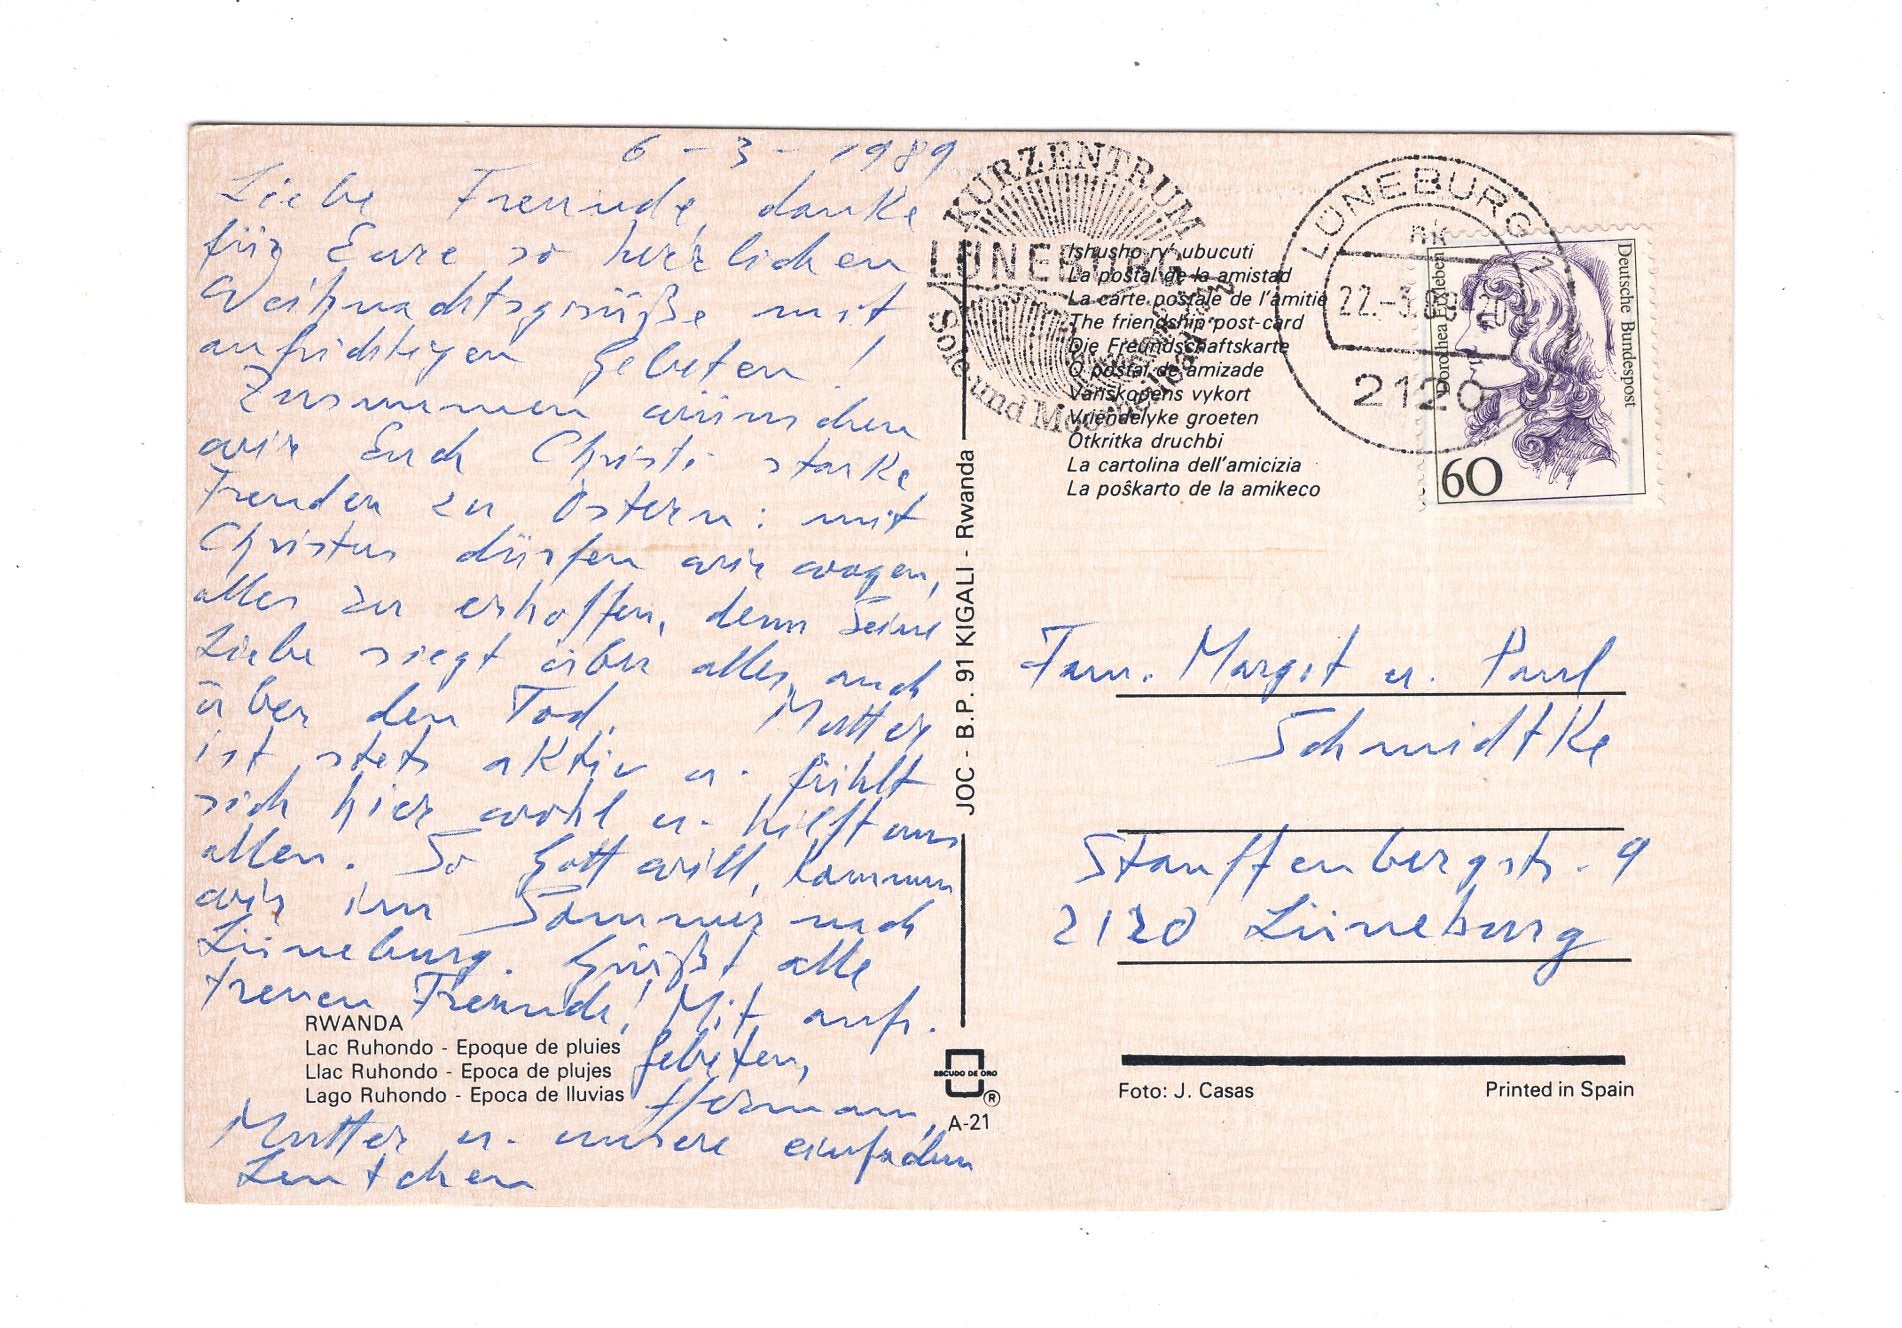 6-3-1989
Liebe Freunde, danke
für Eure so herzlichen
Weihnachtsgrüße mit
aufrichtigen Gebeten!
Zusammen wünschen
wir Euch Christi starke
Freuden zu Ostern: mit
Christus dürfen wir wagen,
alles zu erhoffen, denn Seine
Liebe siegt über alles, auch
über den Tod. Mutter
ist stets aktiv u. fühlt
sich hier wohl u. hilft uns
allen. So Gott will, kommen
wir im Sommer nach
Lüneburg. Grüßt alle
treuen Freunde! Mit aufr.
Gebeten,
Hermann,
Mutter u. unsere einfachen
Leutchen
RWANDA
Lac Ruhondo - Epoque de pluies
Llac Ruhondo - Epoca de plujes
Lago Ruhondo - Epoca de lluvias
JOC - B.P. 91 KIGALI - Rwanda
ESCUDO DE ORO
®
A-21
KURZENTRUM
LÜNEBURG
Sole- und Moorheilbad
Ishusho ry' ubucuti
La postal de la amistad
La carte postale de l'amitié
The friendship post-card
Die Freundschaftskarte
O postal de amizade
Vänskapens vykort
Vriendelyke groeten
Otkritka druchbi
La cartolina dell'amicizia
La poŝkarto de la amikeco
LÜNEBURG 1
22.-3.89-20
2120
Dorothea Erxleben
Deutsche Bundespost
60
Fam. Margit u. Paul
Schmidtke
Stauffenbergstr. 9
2120 Lüneburg
Foto: J. Casas
Printed in Spain